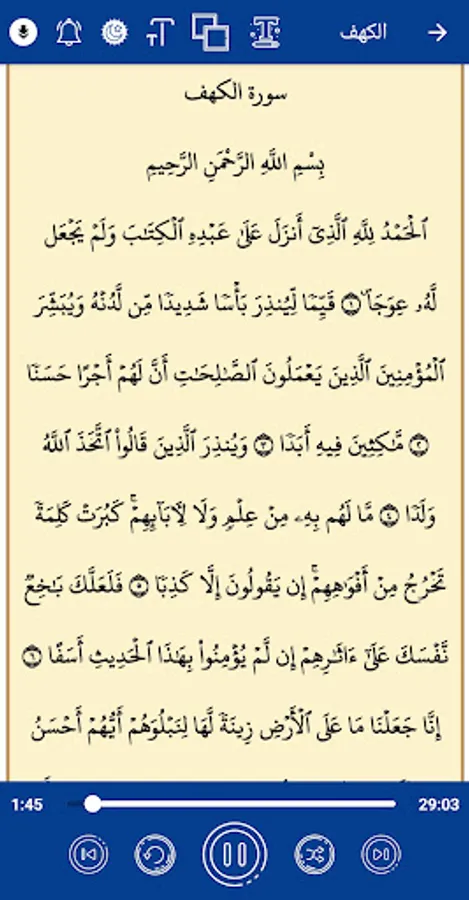 الكهف
سورة الكهف
بِسْمِ اللَّهِ الرَّحْمَنِ الرَّحِيمِ
ٱلْحَمْدُ لِلَّهِ ٱلَّذِىٓ أَنزَلَ عَلَىٰ عَبْدِهِ ٱلْكِتَـٰبَ وَلَمْ يَجْعَل
لَّهُۥ عِوَجَاۜ ۝١ قَيِّمًا لِّيُنذِرَ بَأْسًا شَدِيدًا مِّن لَّدُنْهُ وَيُبَشِّرَ
ٱلْمُؤْمِنِينَ ٱلَّذِينَ يَعْمَلُونَ ٱلصَّـٰلِحَـٰتِ أَنَّ لَهُمْ أَجْرًا حَسَنًا
۝٢ مَّـٰكِثِينَ فِيهِ أَبَدًا ۝٣ وَيُنذِرَ ٱلَّذِينَ قَالُوا۟ ٱتَّخَذَ ٱللَّهُ
وَلَدًا ۝٤ مَّا لَهُم بِهِۦ مِنْ عِلْمٍ وَلَا لِـَٔابَآئِهِمْ ۚ كَبُرَتْ كَلِمَةً
تَخْرُجُ مِنْ أَفْوَٰهِهِمْ ۚ إِن يَقُولُونَ إِلَّا كَذِبًا ۝٥ فَلَعَلَّكَ بَـٰخِعٌ
نَّفْسَكَ عَلَىٰٓ ءَاثَـٰرِهِمْ إِن لَّمْ يُؤْمِنُوا۟ بِهَـٰذَا ٱلْحَدِيثِ أَسَفًا ۝٦
إِنَّا جَعَلْنَا مَا عَلَى ٱلْأَرْضِ زِينَةً لَّهَا لِنَبْلُوَهُمْ أَيُّهُمْ أَحْسَنُ
1:45 29:03